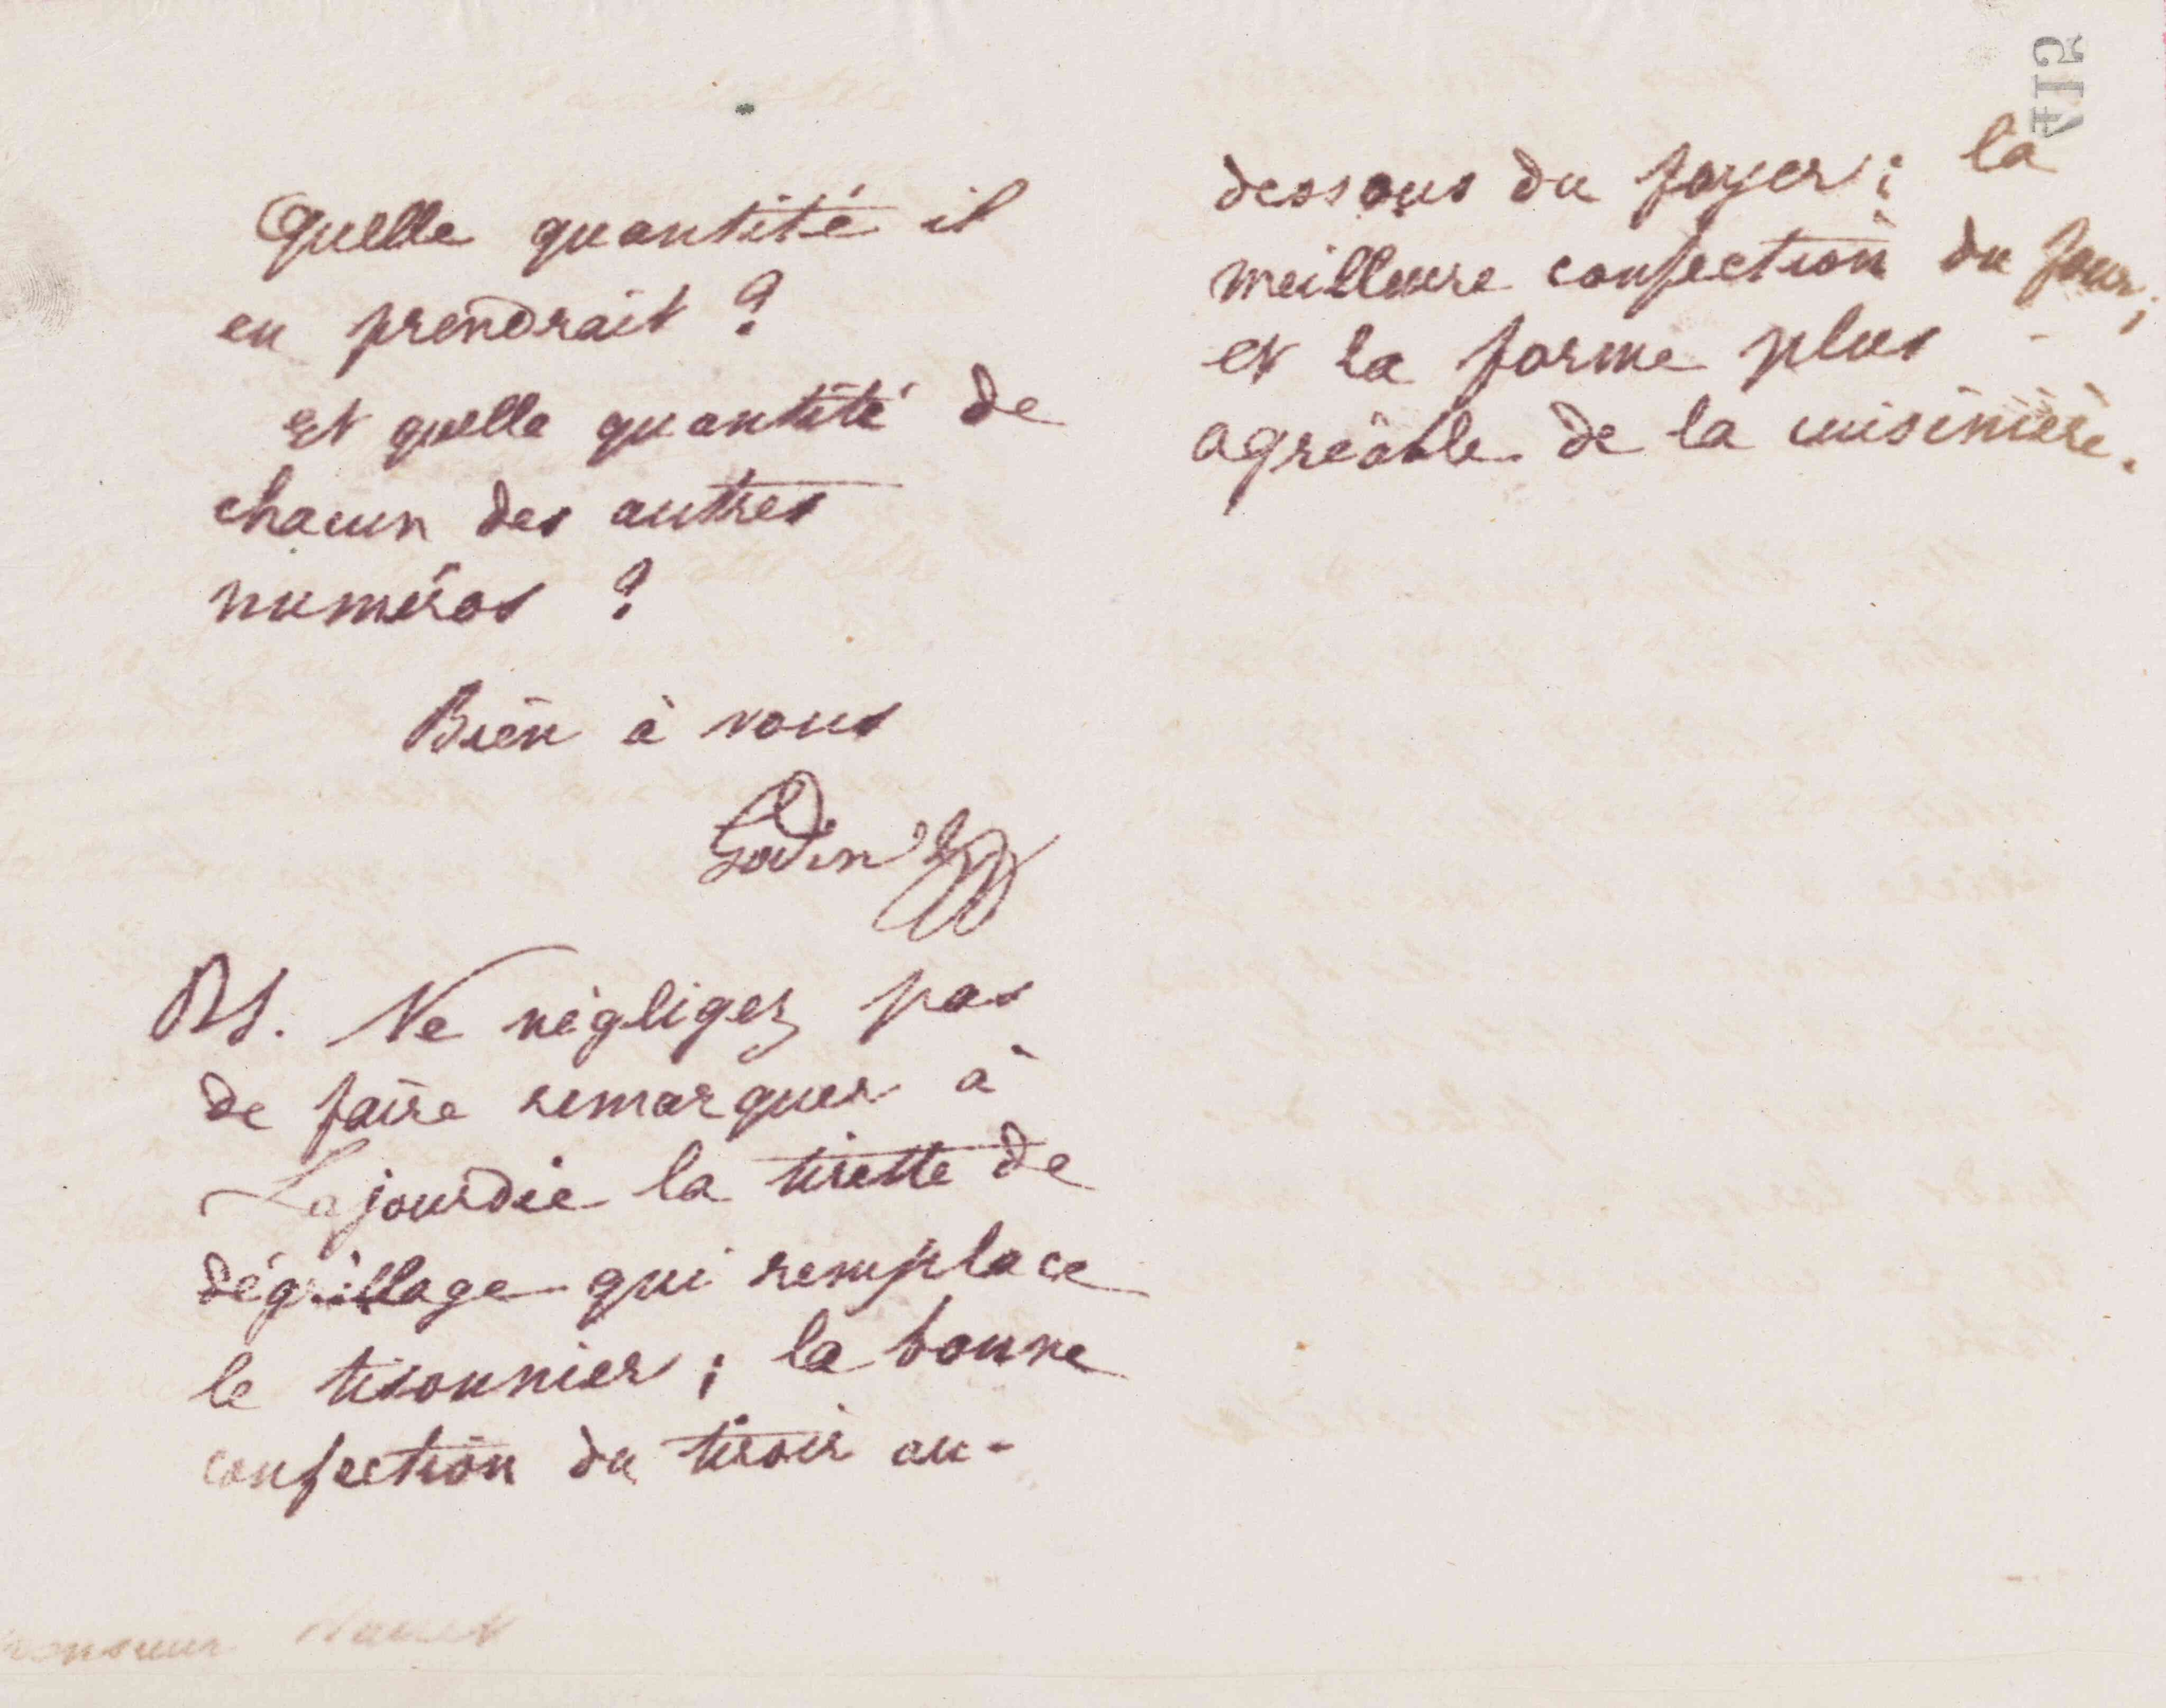 Quelle quantité il
en prendrait ?
et quelle quantité de
chacun des autres
numéros ?
Bien à vous
Godin
PS. Ne négligez pas
de faire remarquer à
Lajourdie la tirette de
dégrillage qui remplace
le tisonnier ; la bonne
confection du tiroir au-
Monsieur
dessous du foyer ; la
meilleure confection du four ;
et la forme plus
agréable de la cuisinière.
415